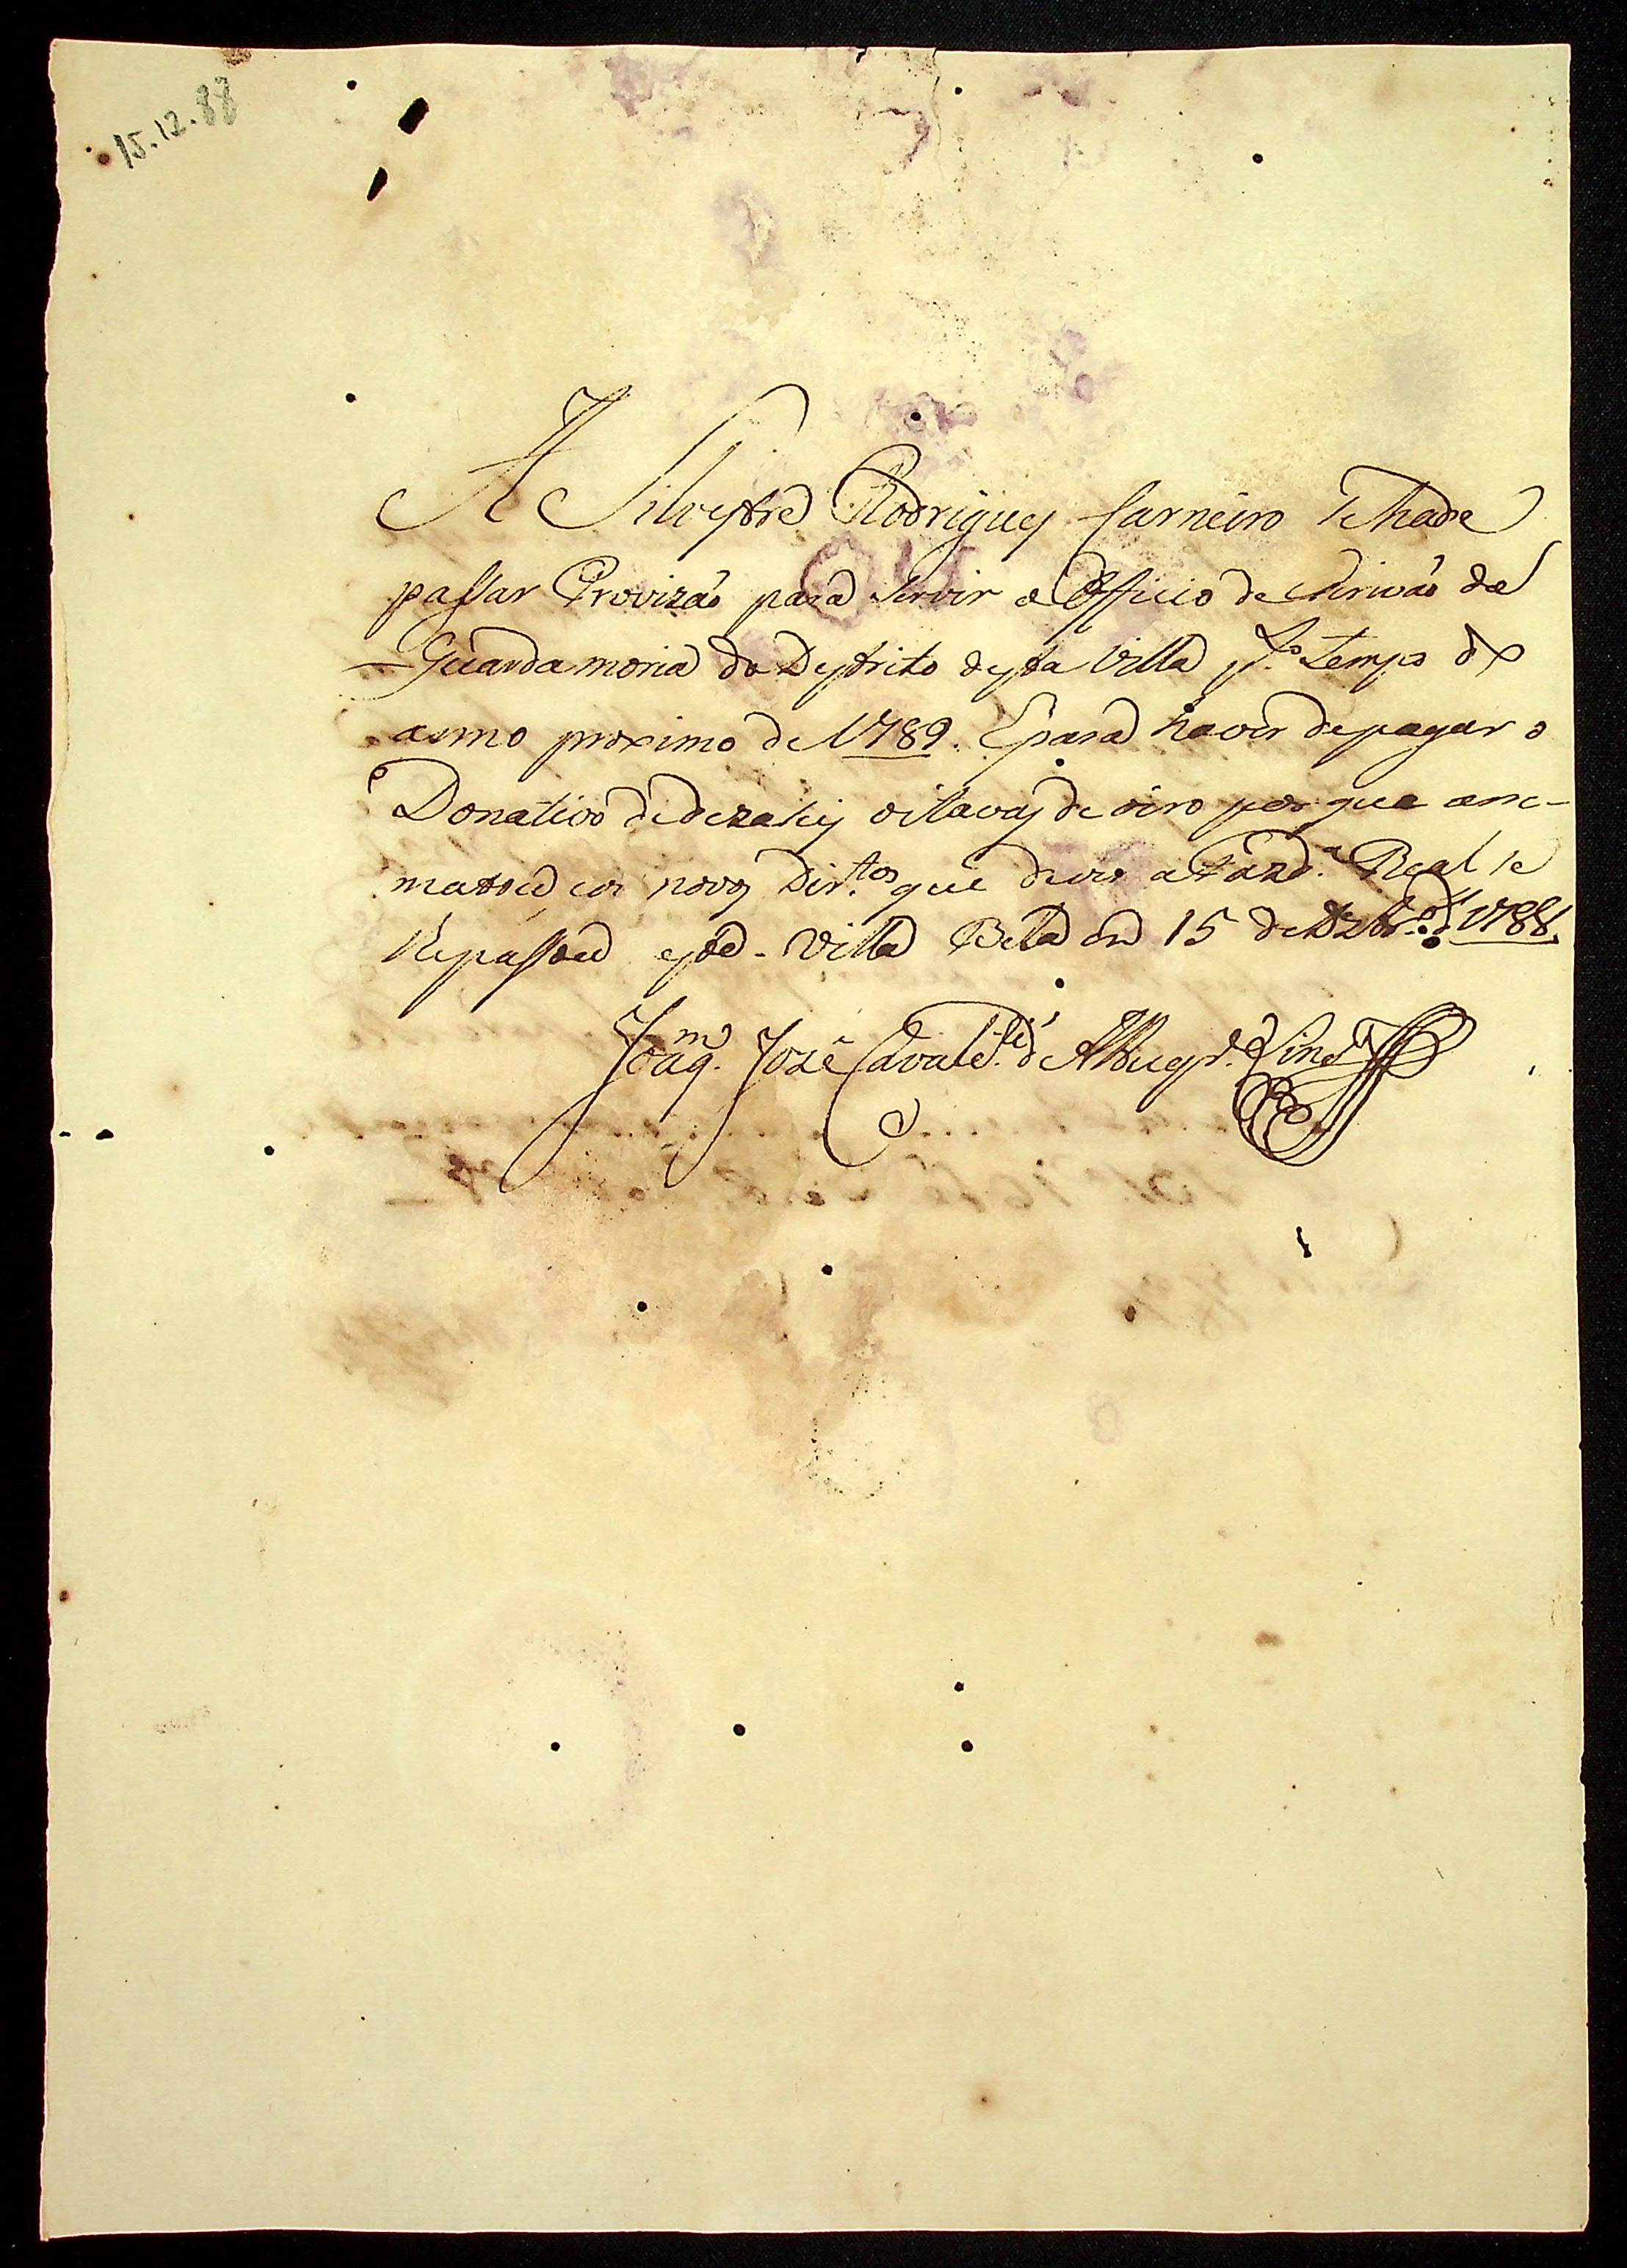 15.12.88
A Silvestre Rodrigues Carneiro se hade
passar Provizaõ para servir o Officio de Escrivaõ da
Guardamoria do Destrito desta Villa p.ͦ tempo do
anno proximo de 1789. E para haver de pagar o
Donativo de dezaseis oitavas de oiro por que arre-
matou e os novos Dir.tos que deve a Fazd.ª Real se
lhe passou esta. Villa Bella em 15 de Dezbr.º d' 1788.
Joaq.m José Cavalc.te d'Albuqr.e Lins